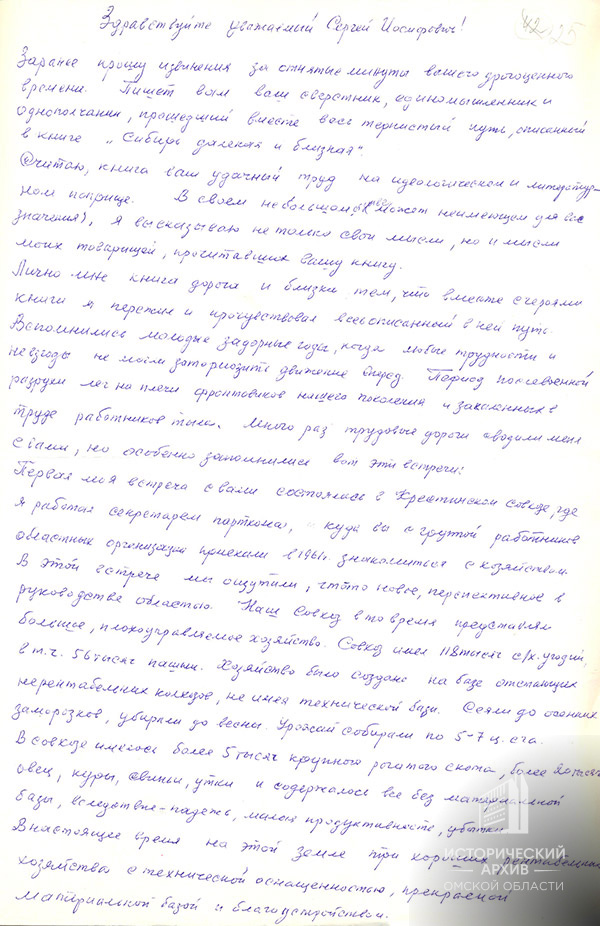 Здравствуйте уважаемый Сергей Иосифович!
42 25
Заранее прошу извинения за отнятые минуты вашего драгоценного
времени. Пишет вам ваш сверстник, единомышленник и
однополчанин, прошедший вместе весь тернистый путь, описанный
в книге „Сибирь далекая и близкая".
Считаю, книга ваш удачный труд на идеологическом и литератур-
ном поприще. В своем небольшом (может неимеющем для вас
значения), я высказываю не только свои мысли, но и мысли
моих товарищей, прочитавших вашу книгу.
Лично мне книга дорога и близка тем, что вместе с героями
книги я пережил и прочувствовал весь описанный в ней путь.
Вспомнились молодые задорные годы, когда любые трудности и
невзгоды не могли затормозить движение вперед. Период послевоенной
разрухи лег на плечи фронтовиков нашего поколения и закаленных в
труде работников тыла. Много раз трудовые дороги сводили меня
с вами, но особенно запомнились вот эти встречи:
Первая моя встреча с вами состоялась в Крестинском совхозе, где
я работал секретарем парткома, куда вы с группой работников
областных организаций приехали в 1961г. знакомиться с хозяйством.
В этой встрече мы ощутили, что-то новое, перспективное в
руководстве областью. Наш совхоз в то время представлял
большое, плохоуправляемое хозяйство. Совхоз имел 118 тысяч с/х. угодий
в т.ч. 56 тысяч пашни. Хозяйство было создано на базе отстающих
нерентабельных колхозов, не имея технической базы. Сеяли до осенних
заморозков, убирали до весны. Урожай собирали по 5-7 ц. с га.
В совхозе имелось более 5 тысяч крупного рогатого скота, более 20 тысяч
овец, куры, свиньи, утки и содержалось все без материальной
базы, вследствие - падежь, малая продуктивность, убытки.
В настоящее время на этой земле три хороших, рентабельных
хозяйства с технической оснащенностью, прекрасной
материальной базой и благоустройством.
ИСТОРИЧЕСКИЙ
АРХИВ
ОМСКОЙ ОБЛАСТИ